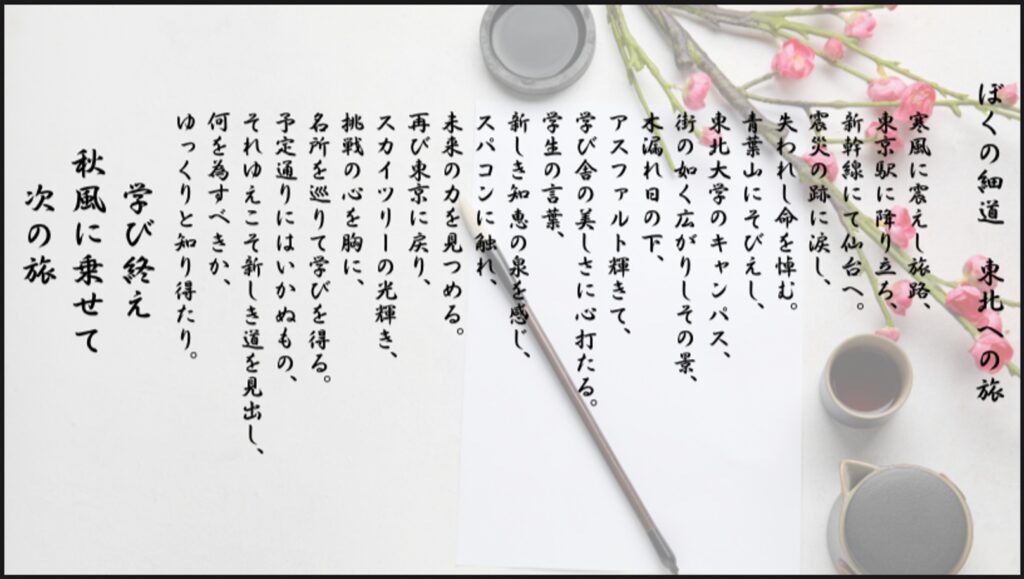 ぼくの細道　東北への旅
寒風に震えし旅路、
東京駅に降り立ち、
新幹線にて仙台へ。
震災の跡に涙し、
失われし命を悼む。
青葉山にそびえし、
東北大学のキャンパス、
街の如く広がりしその景、
木漏れ日の下、
アスファルト輝きて、
学び舎の美しさに心打たる。
学生の言葉、
新しき知恵の泉を感じ、
スパコンに触れ、
未来の力を見つめる。
再び東京に戻り、
スカイツリーの光輝き、
挑戦の心を胸に、
名所を巡りて学びを得る。
予定通りにはいかぬもの、
それゆえこそ新しき道を見出し、
何を為すべきか、
ゆっくりと知り得たり。
学び終え
秋風に乗せて
次の旅